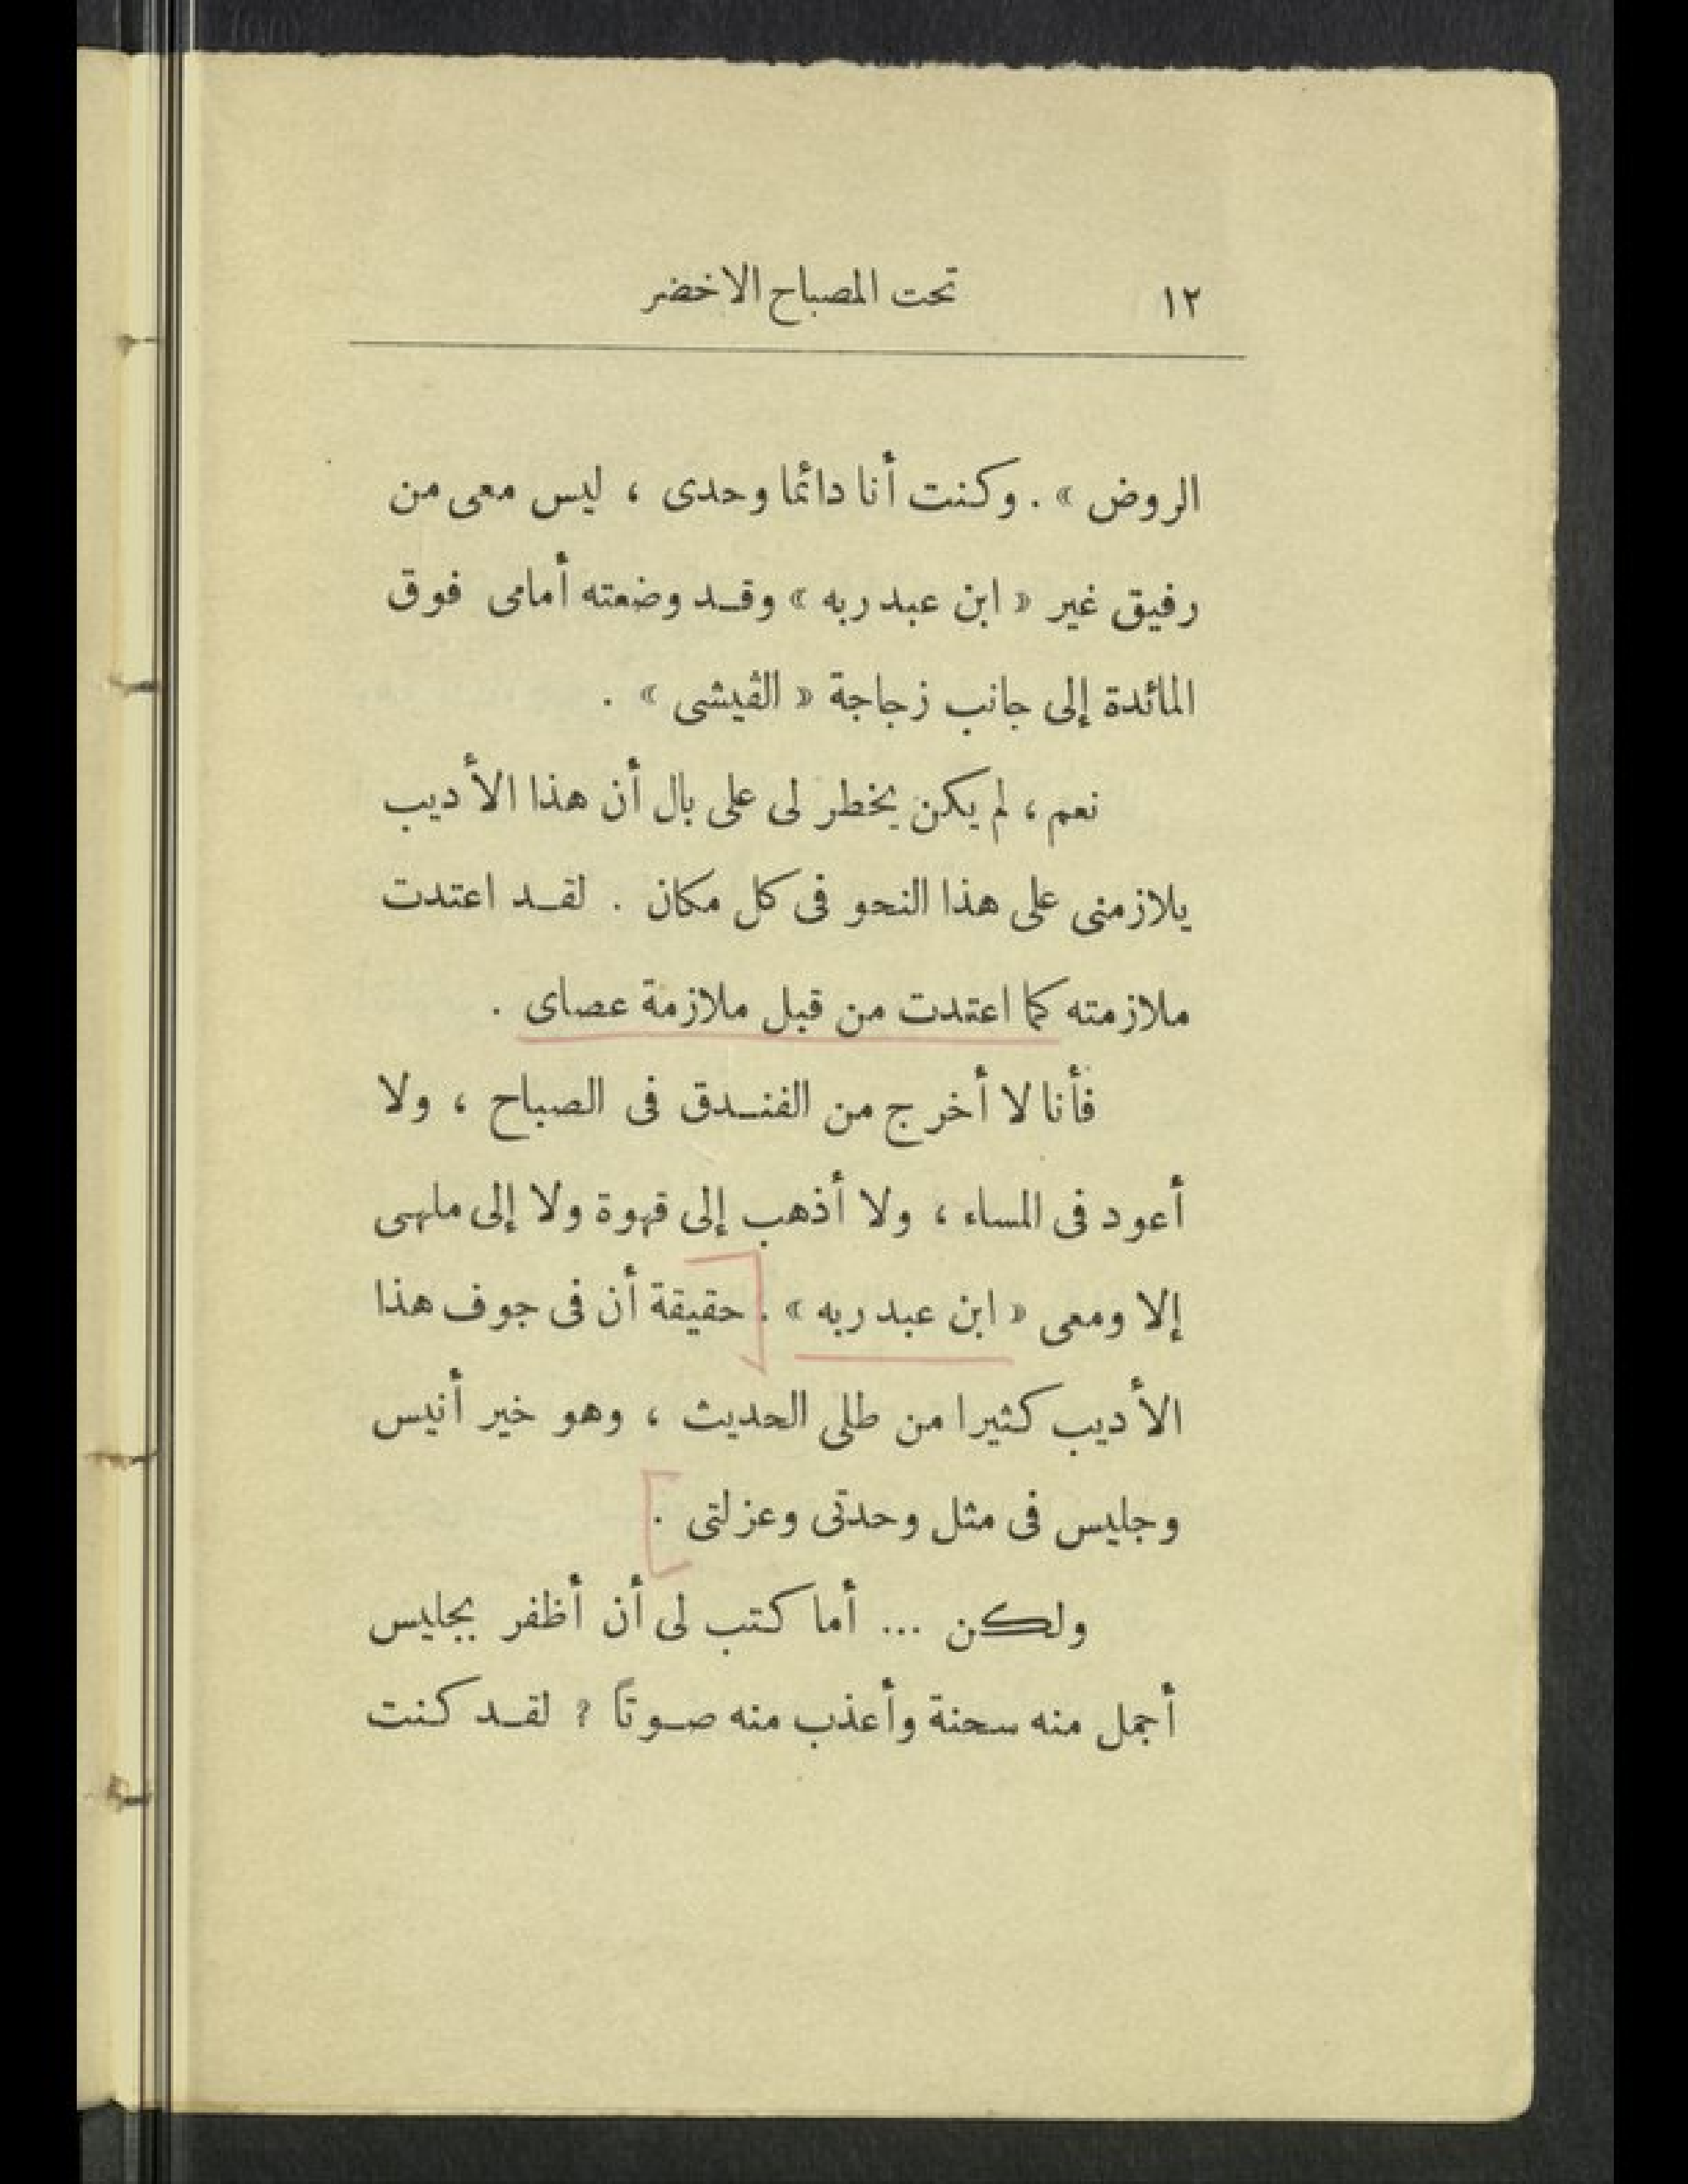 ١٢ تحت المصباح الاخضر
الروض » . وكنت أنا دائما وحدى ، ليس معى من
رفيق غير « ابن عبد ربه » وقد وضعته أمامى فوق
المائدة إلى جانب زجاجة « الڤيشى » .
نعم ، لم يكن يخطر لى على بال أن هذا الأديب
يلازمنى على هذا النحو فى كل مكان . لقد اعتدت
ملازمته كما اعتدت من قبل ملازمة عصاى .
فأنا لا أخرج من الفندق فى الصباح ، ولا
أعود فى المساء ، ولا أذهب إلى قهوة ولا إلى ملهى
إلا ومعى « ابن عبد ربه » . حقيقة أن فى جوف هذا
الأديب كثيرا من طلى الحديث ، وهو خير أنيس
وجليس فى مثل وحدتى وعزلتى .
ولكن ... أما كتب لى أن أظفر بجليس
أجمل منه سحنة وأعذب منه صوتاً ? لقد كنت